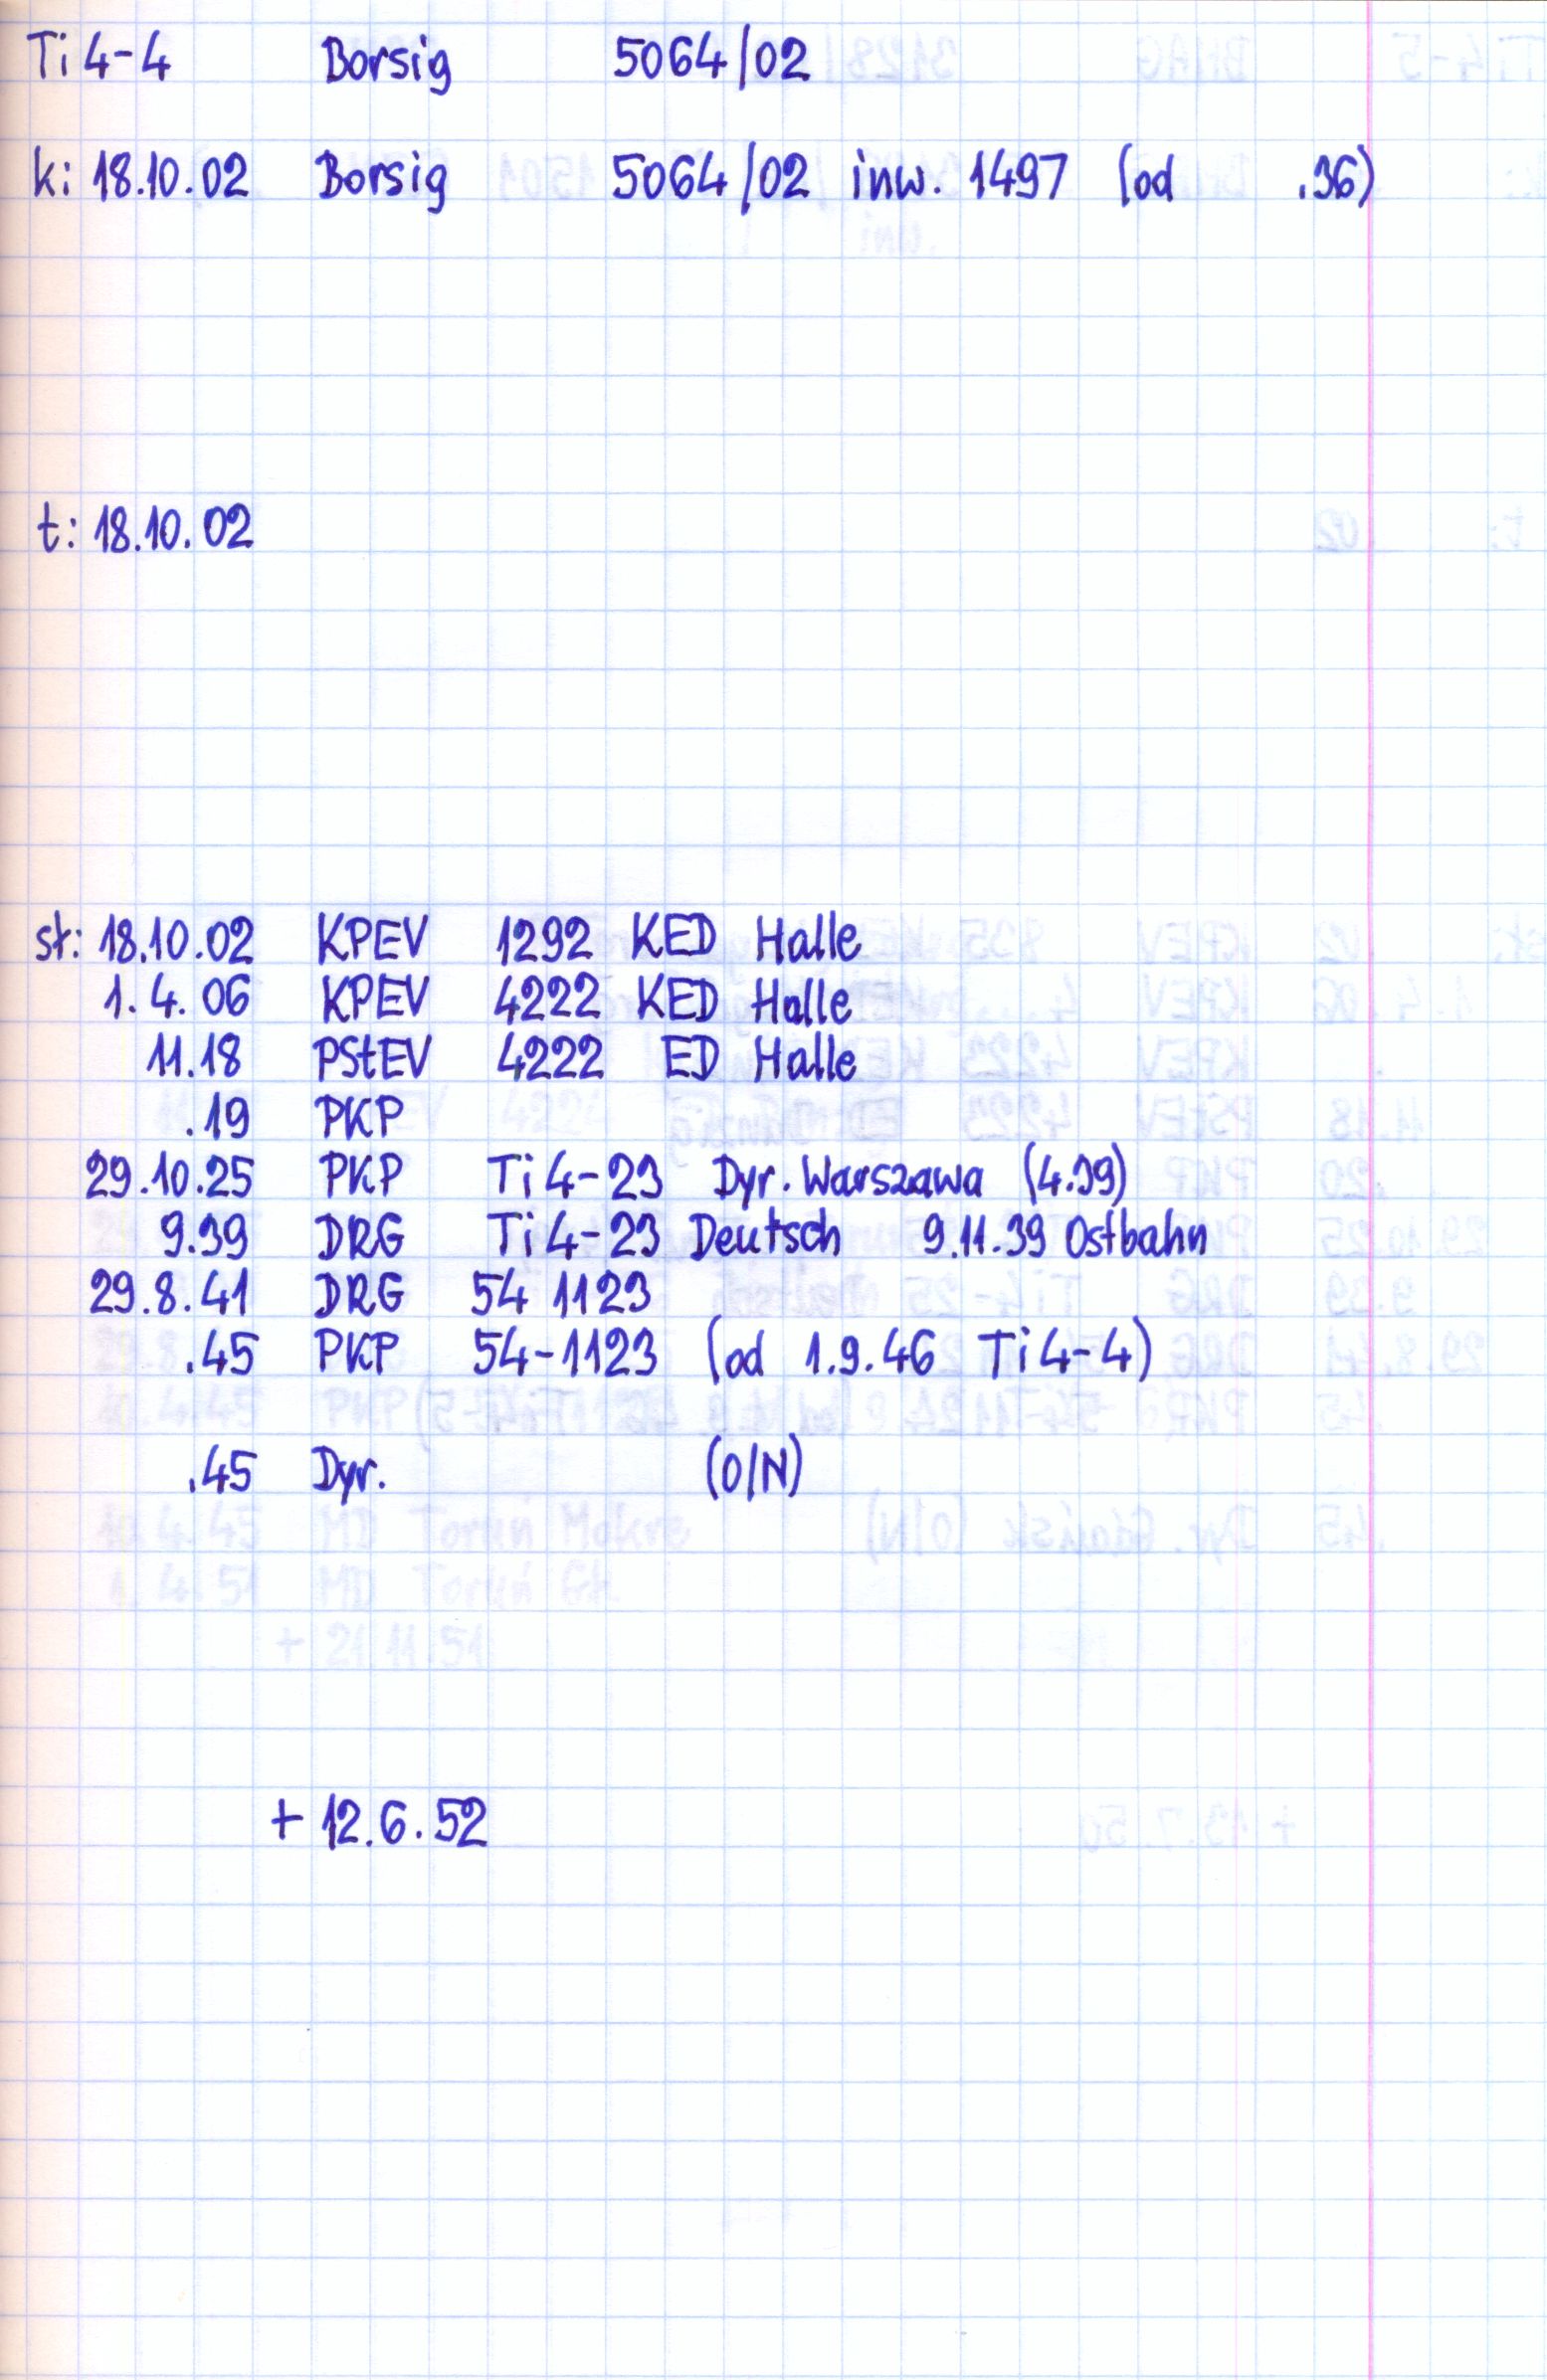 Ti 4-4 Borsig 5064/02
k: 18.10.02 Borsig 5064/02 inw. 1497 (od .36)
t: 18.10.02
st: 18.10.02 KPEV 1292 KED Halle
1.4.06 KPEV 4222 KED Halle
11.18 PStEV 4222 ED Halle
.19 PKP
29.10.25 PKP Ti 4-23 Dyr. Warszawa (4.39)
9.39 DRG Ti 4-23 Deutsch 9.11.39 Ostbahn
29.8.41 DRG 54 1123
.45 PKP 54-1123 (od 1.9.46 Ti 4-4)
.45 Dyr. (O/N)
+ 12.6.52